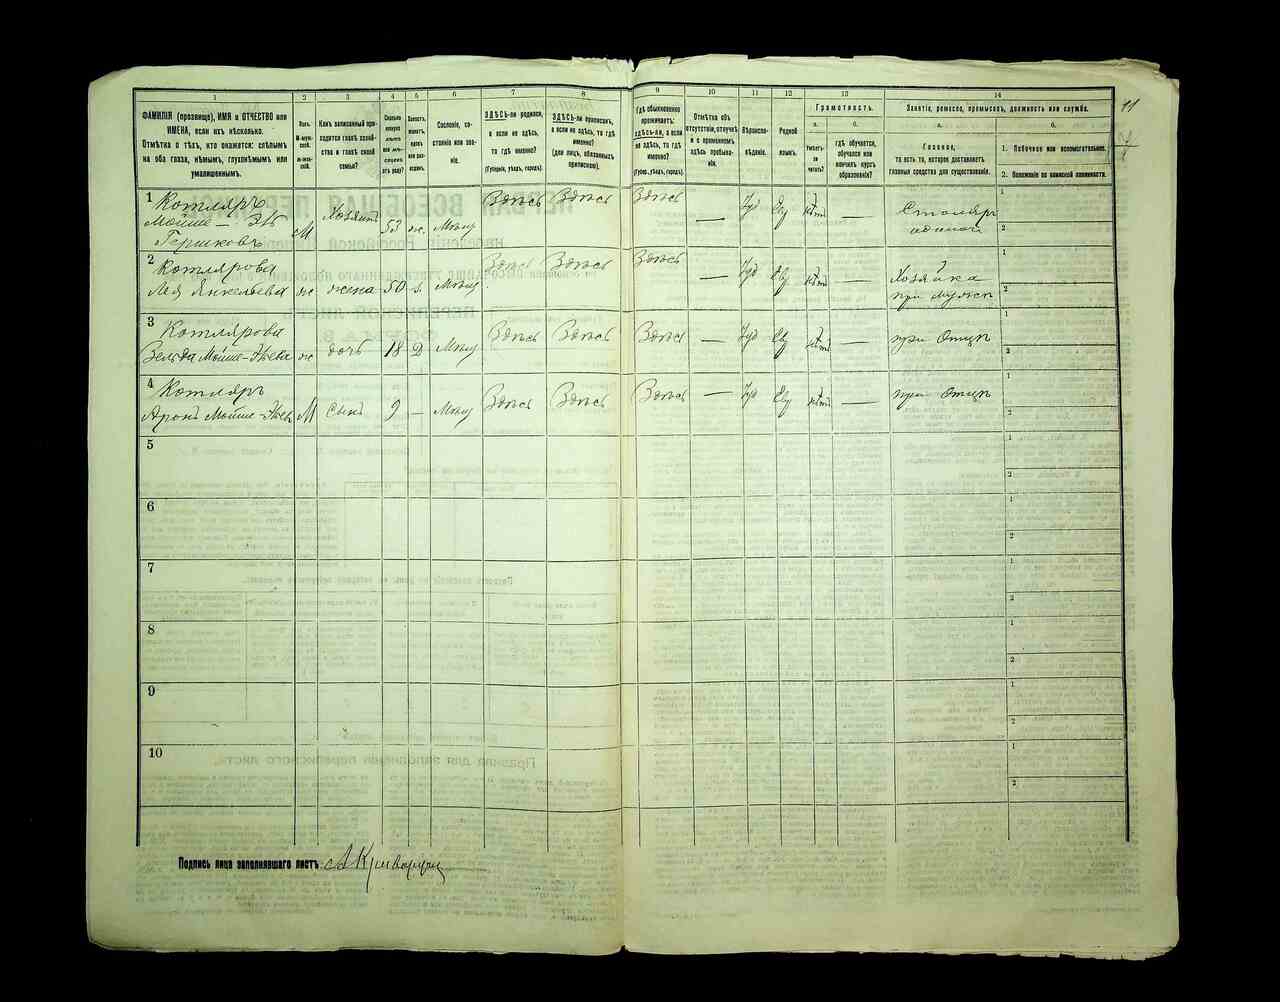 1
2
3
4
5
6
7
8
9
10
11
12
13
14
11
ФАМИЛІЯ (прозвище), ИМЯ и ОТЧЕСТВО или
ИМЕНА, если ихъ нѣсколько.
Отмѣтка о тѣхъ, кто окажется: слѣпымъ
на оба глаза, нѣмымъ, глухонѣмымъ или
умалишеннымъ.
Полъ.
М-муж-
ской.
Ж-жен-
скій.
Какъ записанный при-
ходится главѣ хозяй-
ства и главѣ своей
семьи?
Сколько
минуло
лѣтъ
или мѣ-
сяцевъ
отъ роду?
Холостъ,
женатъ,
вдовъ
или раз-
веденъ.
Сословіе, со-
стояніе или зва-
ніе.
ЗДѢСЬ-ли родился,
а если не здѣсь,
то гдѣ именно?
(Губернія, уѣздъ, городъ).
ЗДѢСЬ-ли приписанъ,
а если не здѣсь, то гдѣ
именно?
(для лицъ, обязанныхъ
припискою).
Гдѣ обыкновенно
проживаетъ:
ЗДѢСЬ-ли, а если
не здѣсь, то гдѣ
именно?
(Губерн., уѣздъ, городъ).
Отмѣтка объ
отсутствіи, отлучкѣ
и о временномъ
здѣсь пребыва-
ніи.
Вѣроиспо-
вѣданіе.
Родной
языкъ.
Грамотность.
а.
Умѣетъ-
ли
читать?
б.
гдѣ обучается,
обучался или
кончилъ курсъ
образованія?
Занятіе, ремесло, промыселъ, должность или служба.
а.
Главное,
то есть то, которое доставляетъ
главныя средства для существованія.
б.
1. Побочное или вспомогательное.
2. Положеніе по воинской повинности.
1 Котляръ
Мойше — Зѣ
Гершковъ
М Хозяинъ 53 ж. Мѣщ Здѣсь Здѣсь Здѣсь — Іуд Ев нѣтъ — Столяръ
одиноч
1
2
2 Котлярова
Лея Янкельева ж жена 50 з. Мѣщ Здѣсь Здѣсь Здѣсь — Іуд Ев нѣтъ — Хозяйка
при мужѣ
1
2
3 Котлярова
Мойше-Зѣева ж дочь 18 Д Мѣщ Здѣсь Здѣсь Здѣсь — Іуд Ев нѣтъ — при Отцѣ
1
2
4 Котляръ
Аронъ Мойше-Зѣев М Сынъ 9 — Мѣщ Здѣсь Здѣсь Здѣсь — Іуд Ев нѣтъ — при Отцѣ
1
2
5
1
2
6
1
2
7
1
2
8
1
2
9
1
2
10
1
2
Подпись лица заполнявшаго листъ